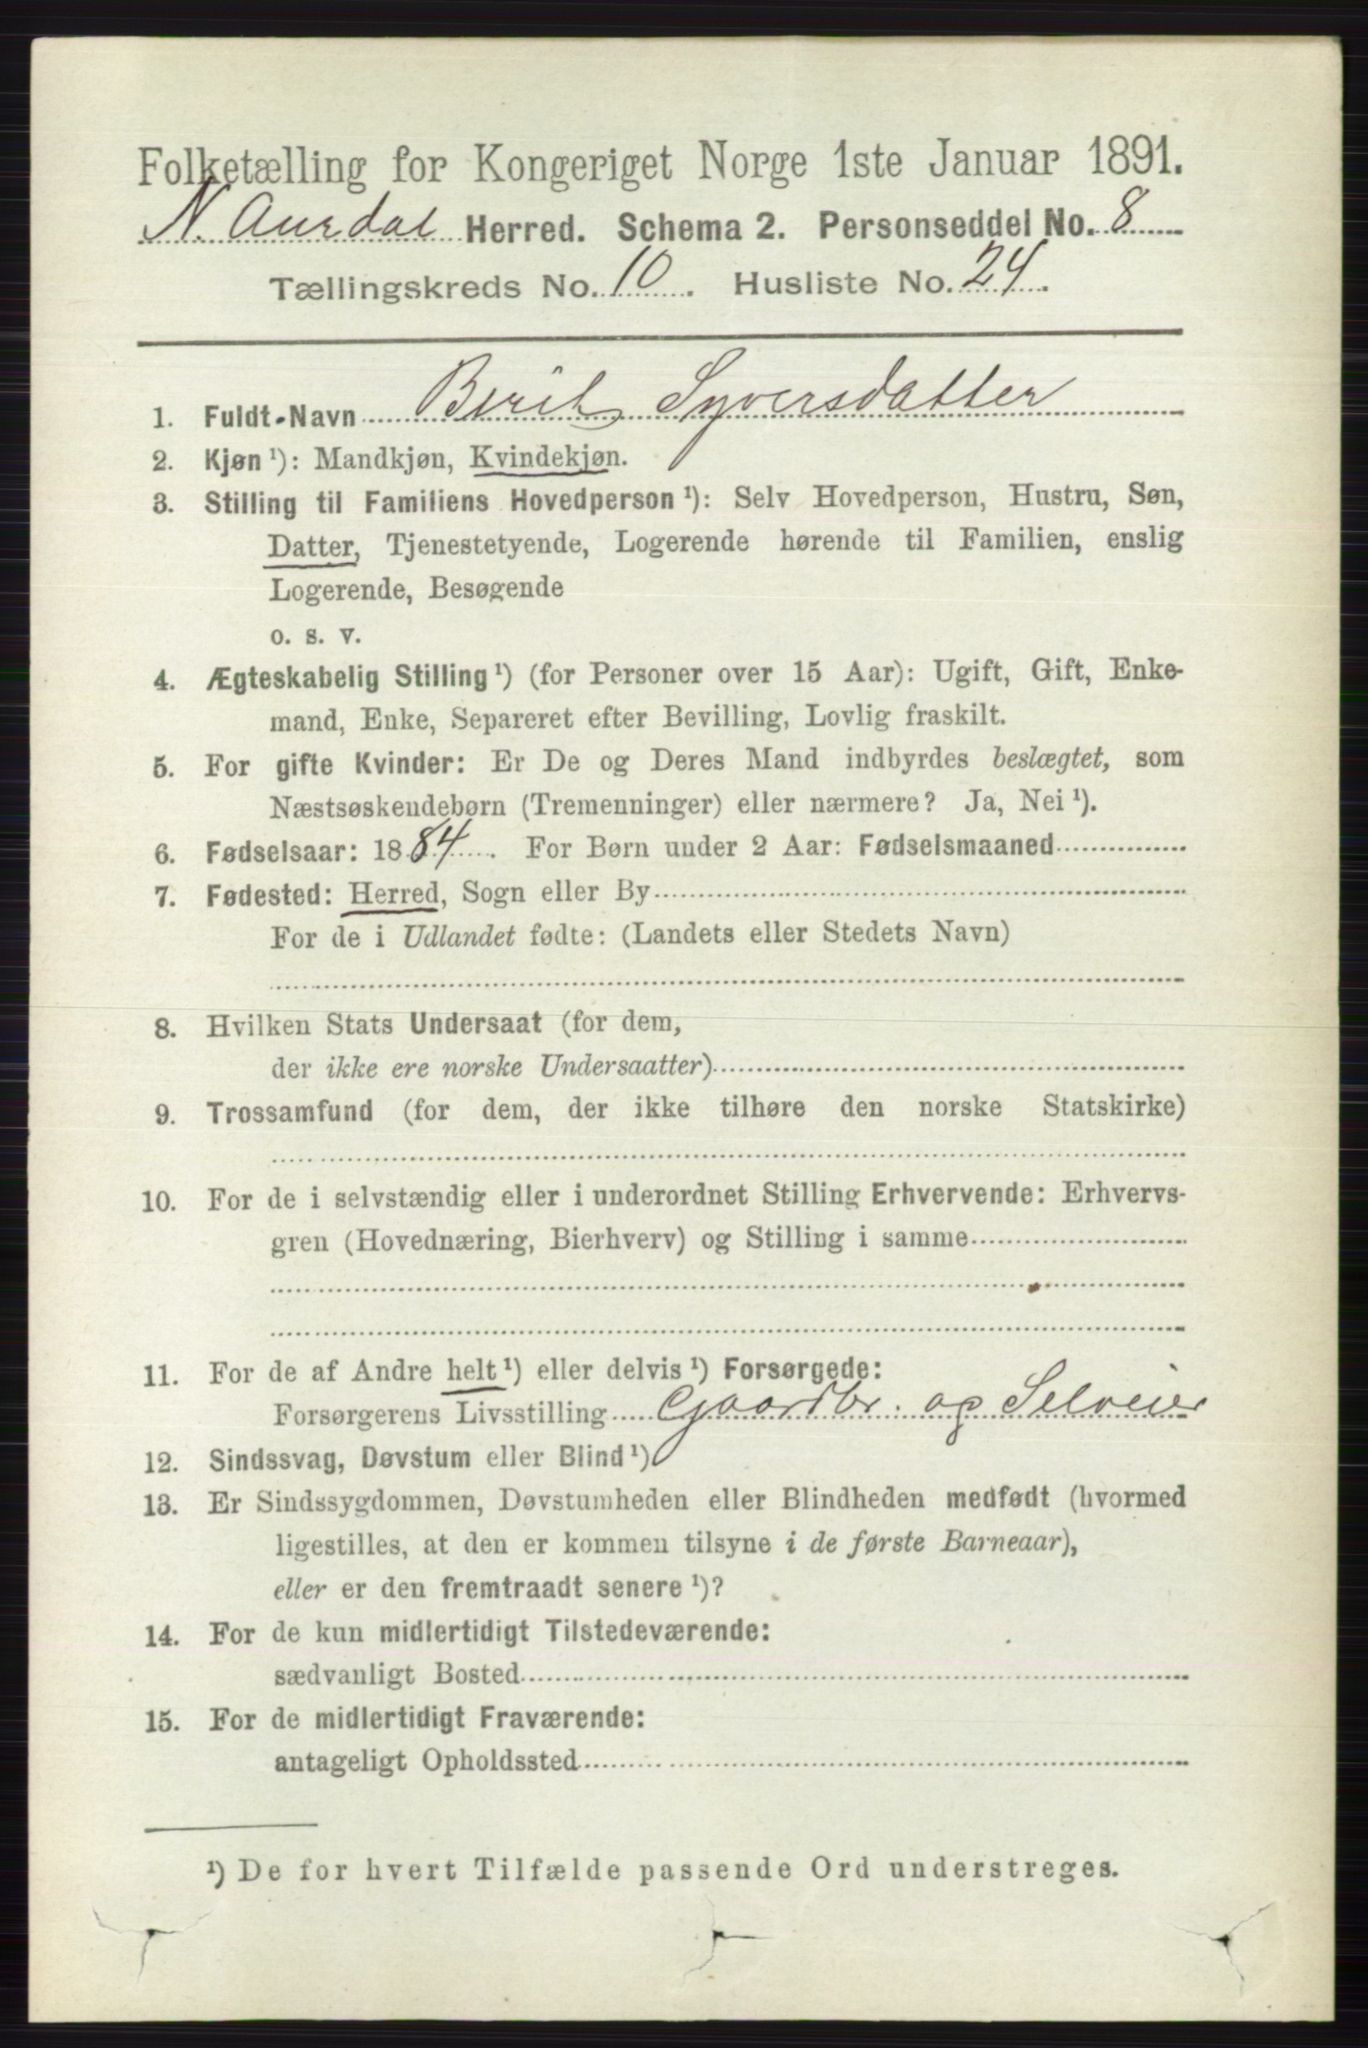 Folketælling for Kongeriget Norge 1ste Januar 1891.
N. Aurdal Herred. Schema 2. Personseddel No. 8
Tællingskreds No. 10. Husliste No. 24.
1. Fuldt-Navn Berit Syversdatter
2. Kjøn ¹): Mandkjøn, Kvindekjøn.
3. Stilling til Familiens Hovedperson ¹): Selv Hovedperson, Hustru, Søn,
Datter, Tjenestetyende, Logerende hørende til Familien, enslig
Logerende, Besøgende
o. s. v.
4. Ægteskabelig Stilling ¹) (for Personer over 15 Aar): Ugift, Gift, Enke-
mand, Enke, Separeret efter Bevilling, Lovlig fraskilt.
5. For gifte Kvinder: Er De og Deres Mand indbyrdes beslægtet, som
Næstsøskendebørn (Tremenninger) eller nærmere? Ja, Nei ¹).
6. Fødselsaar: 1884. For Børn under 2 Aar: Fødselsmaaned
7. Fødested: Herred, Sogn eller By
For de i Udlandet fødte: (Landets eller Stedets Navn)
8. Hvilken Stats Undersaat (for dem,
der ikke ere norske Undersaatter)
9. Trossamfund (for dem, der ikke tilhøre den norske Statskirke)
10. For de i selvstændig eller i underordnet Stilling Erhvervende: Erhvervs-
gren (Hovednæring, Bierhverv) og Stilling i samme
11. For de af Andre helt ¹) eller delvis ¹) Forsørgede:
Forsørgerens Livsstilling Gaardbr. og Selveier
12. Sindssvag, Døvstum eller Blind ¹)
13. Er Sindssygdommen, Døvstumheden eller Blindheden medfødt (hvormed
ligestilles, at den er kommen tilsyne i de første Barneaar),
eller er den fremtraadt senere ¹)?
14. For de kun midlertidigt Tilstedeværende:
sædvanligt Bosted
15. For de midlertidigt Fraværende:
antageligt Opholdssted
¹) De for hvert Tilfælde passende Ord understreges.